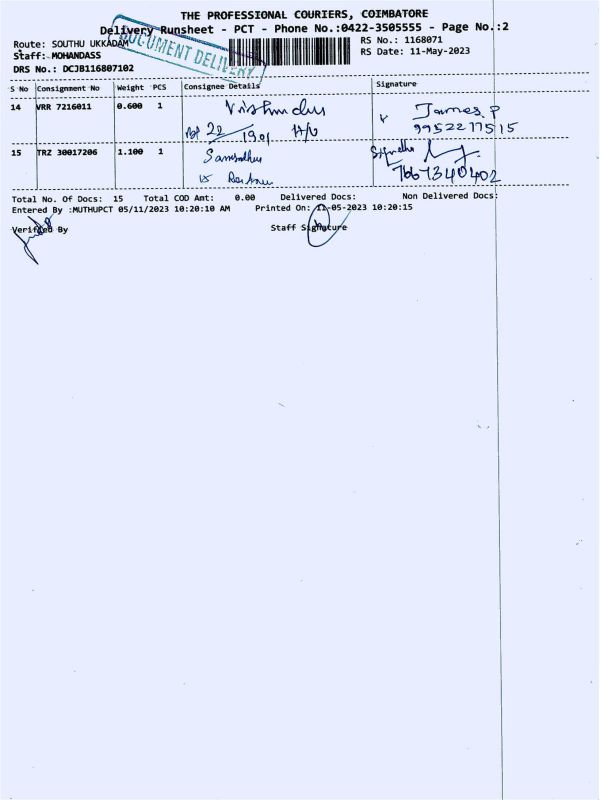 THE PROFESSIONAL COURIERS, COIMBATORE
Delivery Runsheet - PCT - Phone No.:0422-3505555 - Page No.:2
Route: SOUTHU UKKADAM
RS No.: 1168071
Staff: MOHANDASS
RS Date: 11-May-2023
DRS No.: DCJB116807102
DOCUMENT DELIVERY
S No Consignment No Weight PCS Consignee Details Signature
14 VRR 7216011 0.600 1
James. P
22 1901
9952277515
15 TRZ 30017206 1.100 1
7667340402
Total No. Of Docs: 15 Total COD Amt: 0.00 Delivered Docs: Non Delivered Docs:
Entered By :MUTHUPCT 05/11/2023 10:20:10 AM Printed On: 11-05-2023 10:20:15
Verified By Staff Signature